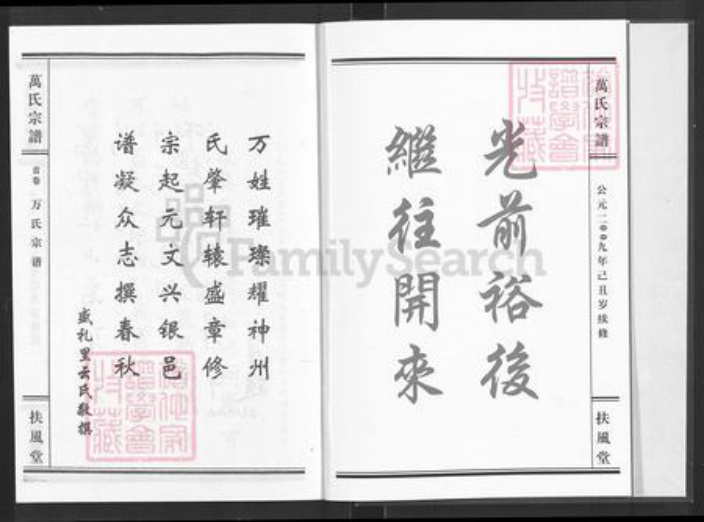 萬氏宗譜
公元二00九年己丑岁续修
扶風堂
光前裕後
繼往開來
万姓璀璨耀神州
氏肇轩辕盛章修
宗起元文兴银邑
谱凝众志撰春秋
盛礼里云氏敬撰
萬氏宗譜
首卷
万氏宗谱
扶風堂
FamilySearch